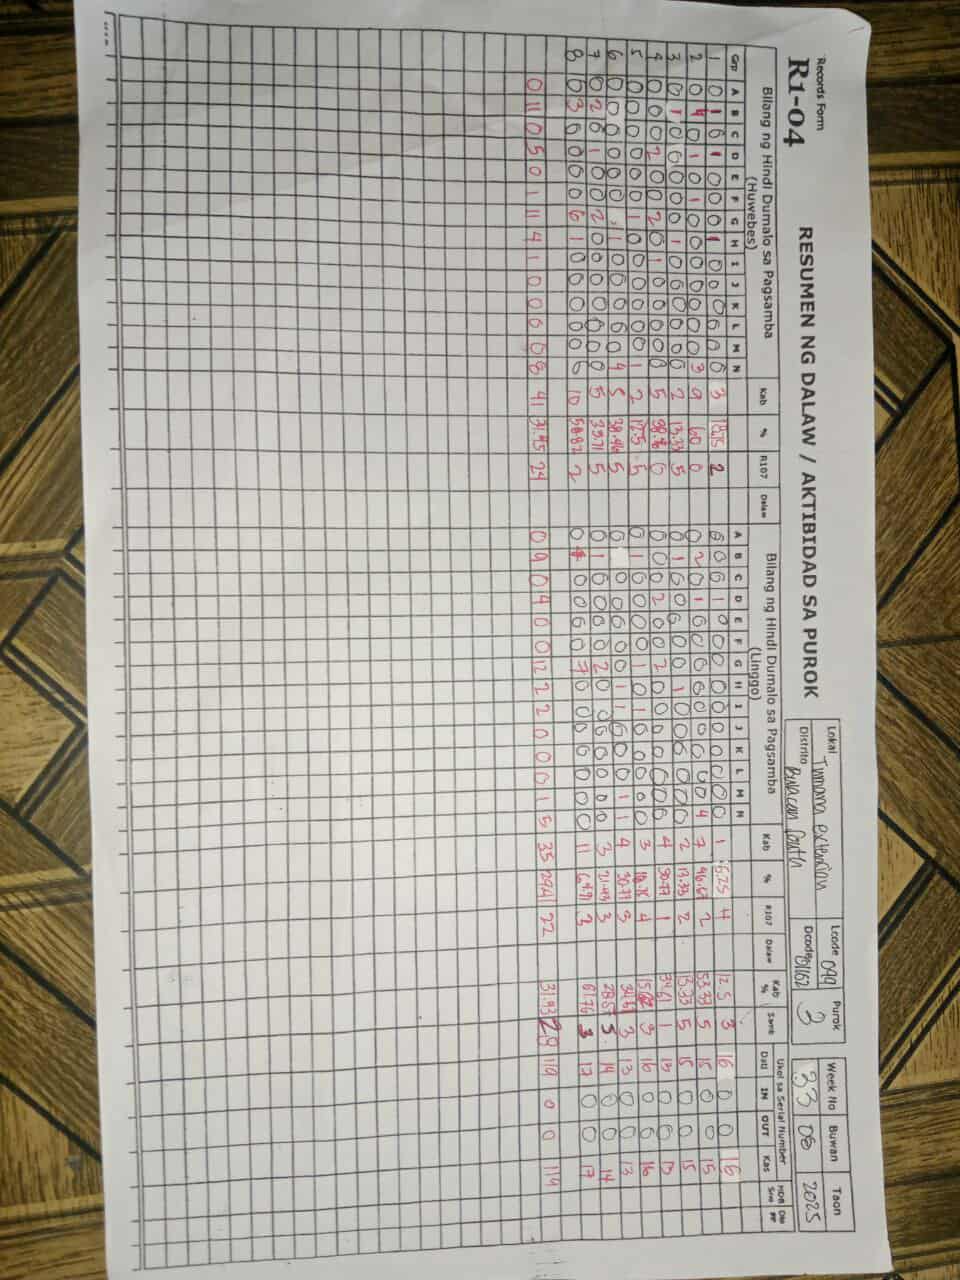 Records Form
R1-04
RESUMEN NG DALAW / AKTIBIDAD SA PUROK
Lokal Tumana extencian Lcode 099 Purok 3
Distrito Bulacan South Dcode 01162
Week No Buwan Taon
33 08 2025
Bilang ng Hindi Dumalo sa Pagsamba (Huwebes) Kab % R107 Dalaw Bilang ng Hindi Dumalo sa Pagsamba (Linggo) Kab % R107 Dalaw Kab % Samb Ukol sa Serial Number
Dati IN OUT Kas
Grp A B C D E F G H I J K L M N A B C D E F G H I J K L M N
1 0 1 0 1 0 0 0 1 0 0 0 0 0 0 3 18.75 2 0 0 0 1 0 0 0 0 0 0 0 0 0 0 1 6.25 4 12.5 3 16 0 0 16
2 0 4 0 1 0 1 0 0 0 0 0 0 0 3 9 60 0 0 2 0 1 0 0 0 0 0 0 0 0 0 4 7 46.67 2 53.33 5 15 0 0 15
3 0 1 0 0 0 0 0 1 0 0 0 0 0 0 2 13.33 5 0 1 0 0 0 0 0 1 0 0 0 0 0 0 2 13.33 2 13.33 5 15 0 0 15
4 0 0 0 2 0 0 2 0 1 0 0 0 0 0 5 0 0 0 0 2 0 0 2 0 0 0 0 0 0 0 4 30.77 1 34.61 1 13 0 0 13
5 0 0 0 0 0 0 1 0 0 0 0 0 0 1 2 12.5 5 0 1 0 0 0 0 1 0 1 0 0 0 0 0 3 18.75 4 3 16 0 0 16
6 0 0 0 0 0 0 1 0 0 0 0 0 4 5 38.46 5 0 0 0 0 0 0 1 1 0 0 0 1 1 4 30.77 3 3 13 0 0 13
7 0 2 0 1 0 0 2 0 0 0 0 0 0 0 5 35.71 5 0 1 0 0 0 0 2 0 0 0 0 0 0 0 3 21.43 3 28.57 5 14 0 0 14
8 0 3 0 0 0 0 6 1 0 0 0 0 0 0 10 58.82 2 0 0 0 0 0 7 0 0 0 0 0 0 0 11 64.71 3 61.76 3 17 0 0 17
0 11 0 5 0 1 11 4 1 0 0 0 0 8 41 24 0 9 0 4 0 0 12 2 2 0 0 0 1 5 35 29.41 22 31.93 28 119 0 0 119